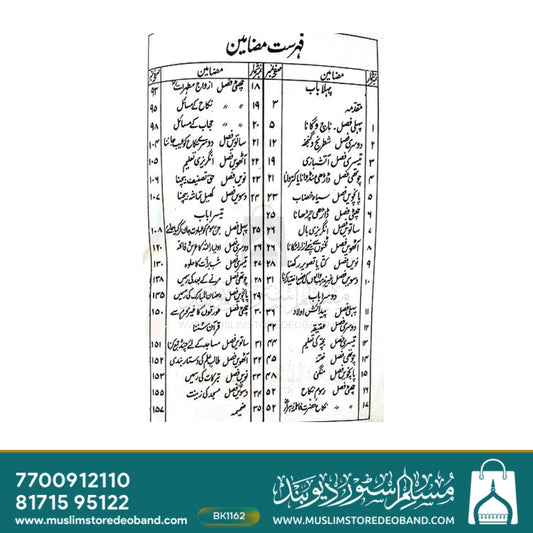 فہرست مضامین
نمبر شمار مضامین صفحہ نمبر
پہلا باب
مقدمہ ۳
۱ پہلی فصل۔ ناچ و گانا ۵
۲ دوسری فصل شطرنج و گنجفہ ۱۲
۳ تیسری فصل آتشبازی ۱۹
۴ چوتھی فصل ڈاڑھی منڈوانا یا کتروانا ۲۱
۵ پانچویں فصل سیاہ خضاب ۲۳
۶ چھٹی فصل ڈاڑھی چڑھانا ۲۵
۷ ساتویں فصل انگریزی بال ۲۶
۸ آٹھویں فصل ۲۶
۹ نویں فصل کتا یا تصویر رکھنا ۲۷
۱۰ دسویں فصل ۲۸
دوسرا باب ۲۹
۱۱ پہلی فصل پیدائش اولاد ۳۶
۱۲ دوسری فصل عقیقہ ۴۲
۱۳ تیسری فصل بچہ کی تعلیم ۴۴
۱۴ چوتھی فصل ختنہ ۴۶
۱۵ پانچویں فصل منگنی ۴۸
۱۶ چھٹی فصل رسوم نکاح ۵۲
۱۷ " " نکاح حضرت فاطمہ زہرا ۵۲
نمبر شمار مضامین صفحہ نمبر
۱۸ چھٹی فصل ازواج مطہرات ۹۳
۱۹ " " نکاح کے مسائل ۹۵
۲۰ " " حجاب کے مسائل ۹۸
۲۱ ساتویں فصل دوسرے نکاح کو عیب جاننا ۱۰۴
۲۲ آٹھویں فصل انگریزی تعلیم ۱۰۵
۲۳ نویں فصل حق تصنیف بیچنا ۱۰۶
۲۴ دسویں فصل کھیل تماشہ بیچنا ۱۰۷
تیسرا باب
۲۵ پہلی فصل ۱۰۸
۲۶ دوسری فصل اولیاء اللہ کا عرس فاتحہ ۱۲۰
۲۷ تیسری فصل شب برأت کا حلوہ ۱۳۰
۲۸ چوتھی فصل مرنے کے بعد کی رسمیں ۱۳۸
۲۹ پانچویں فصل رمضان المبارک کی رسمیں ۱۴۵
۳۰ چھٹی فصل عورتوں کا غیر محرم سے ۱۵۰
قرآن سننا
۳۱ ساتویں فصل مساجد کے لئے چندہ ۱۵۱
۳۲ آٹھویں فصل طالب علم کی دستار بندی ۱۵۲
۳۳ نویں فصل تبرکات کی رسمیں ۱۵۳
۳۴ دسویں فصل مسجد کی زینت ۱۵۵
۳۵ ضمیمہ ۱۵۷
مسلم سٹور دیوبند
WWW.MUSLIMSTOREDEOBAND.COM
7700912110
81715 95122
www.muslimstoredeoband.com
BK1162
مسلم سٹور دیوبند
WWW.MUSLIMSTOREDEOBAND.COM